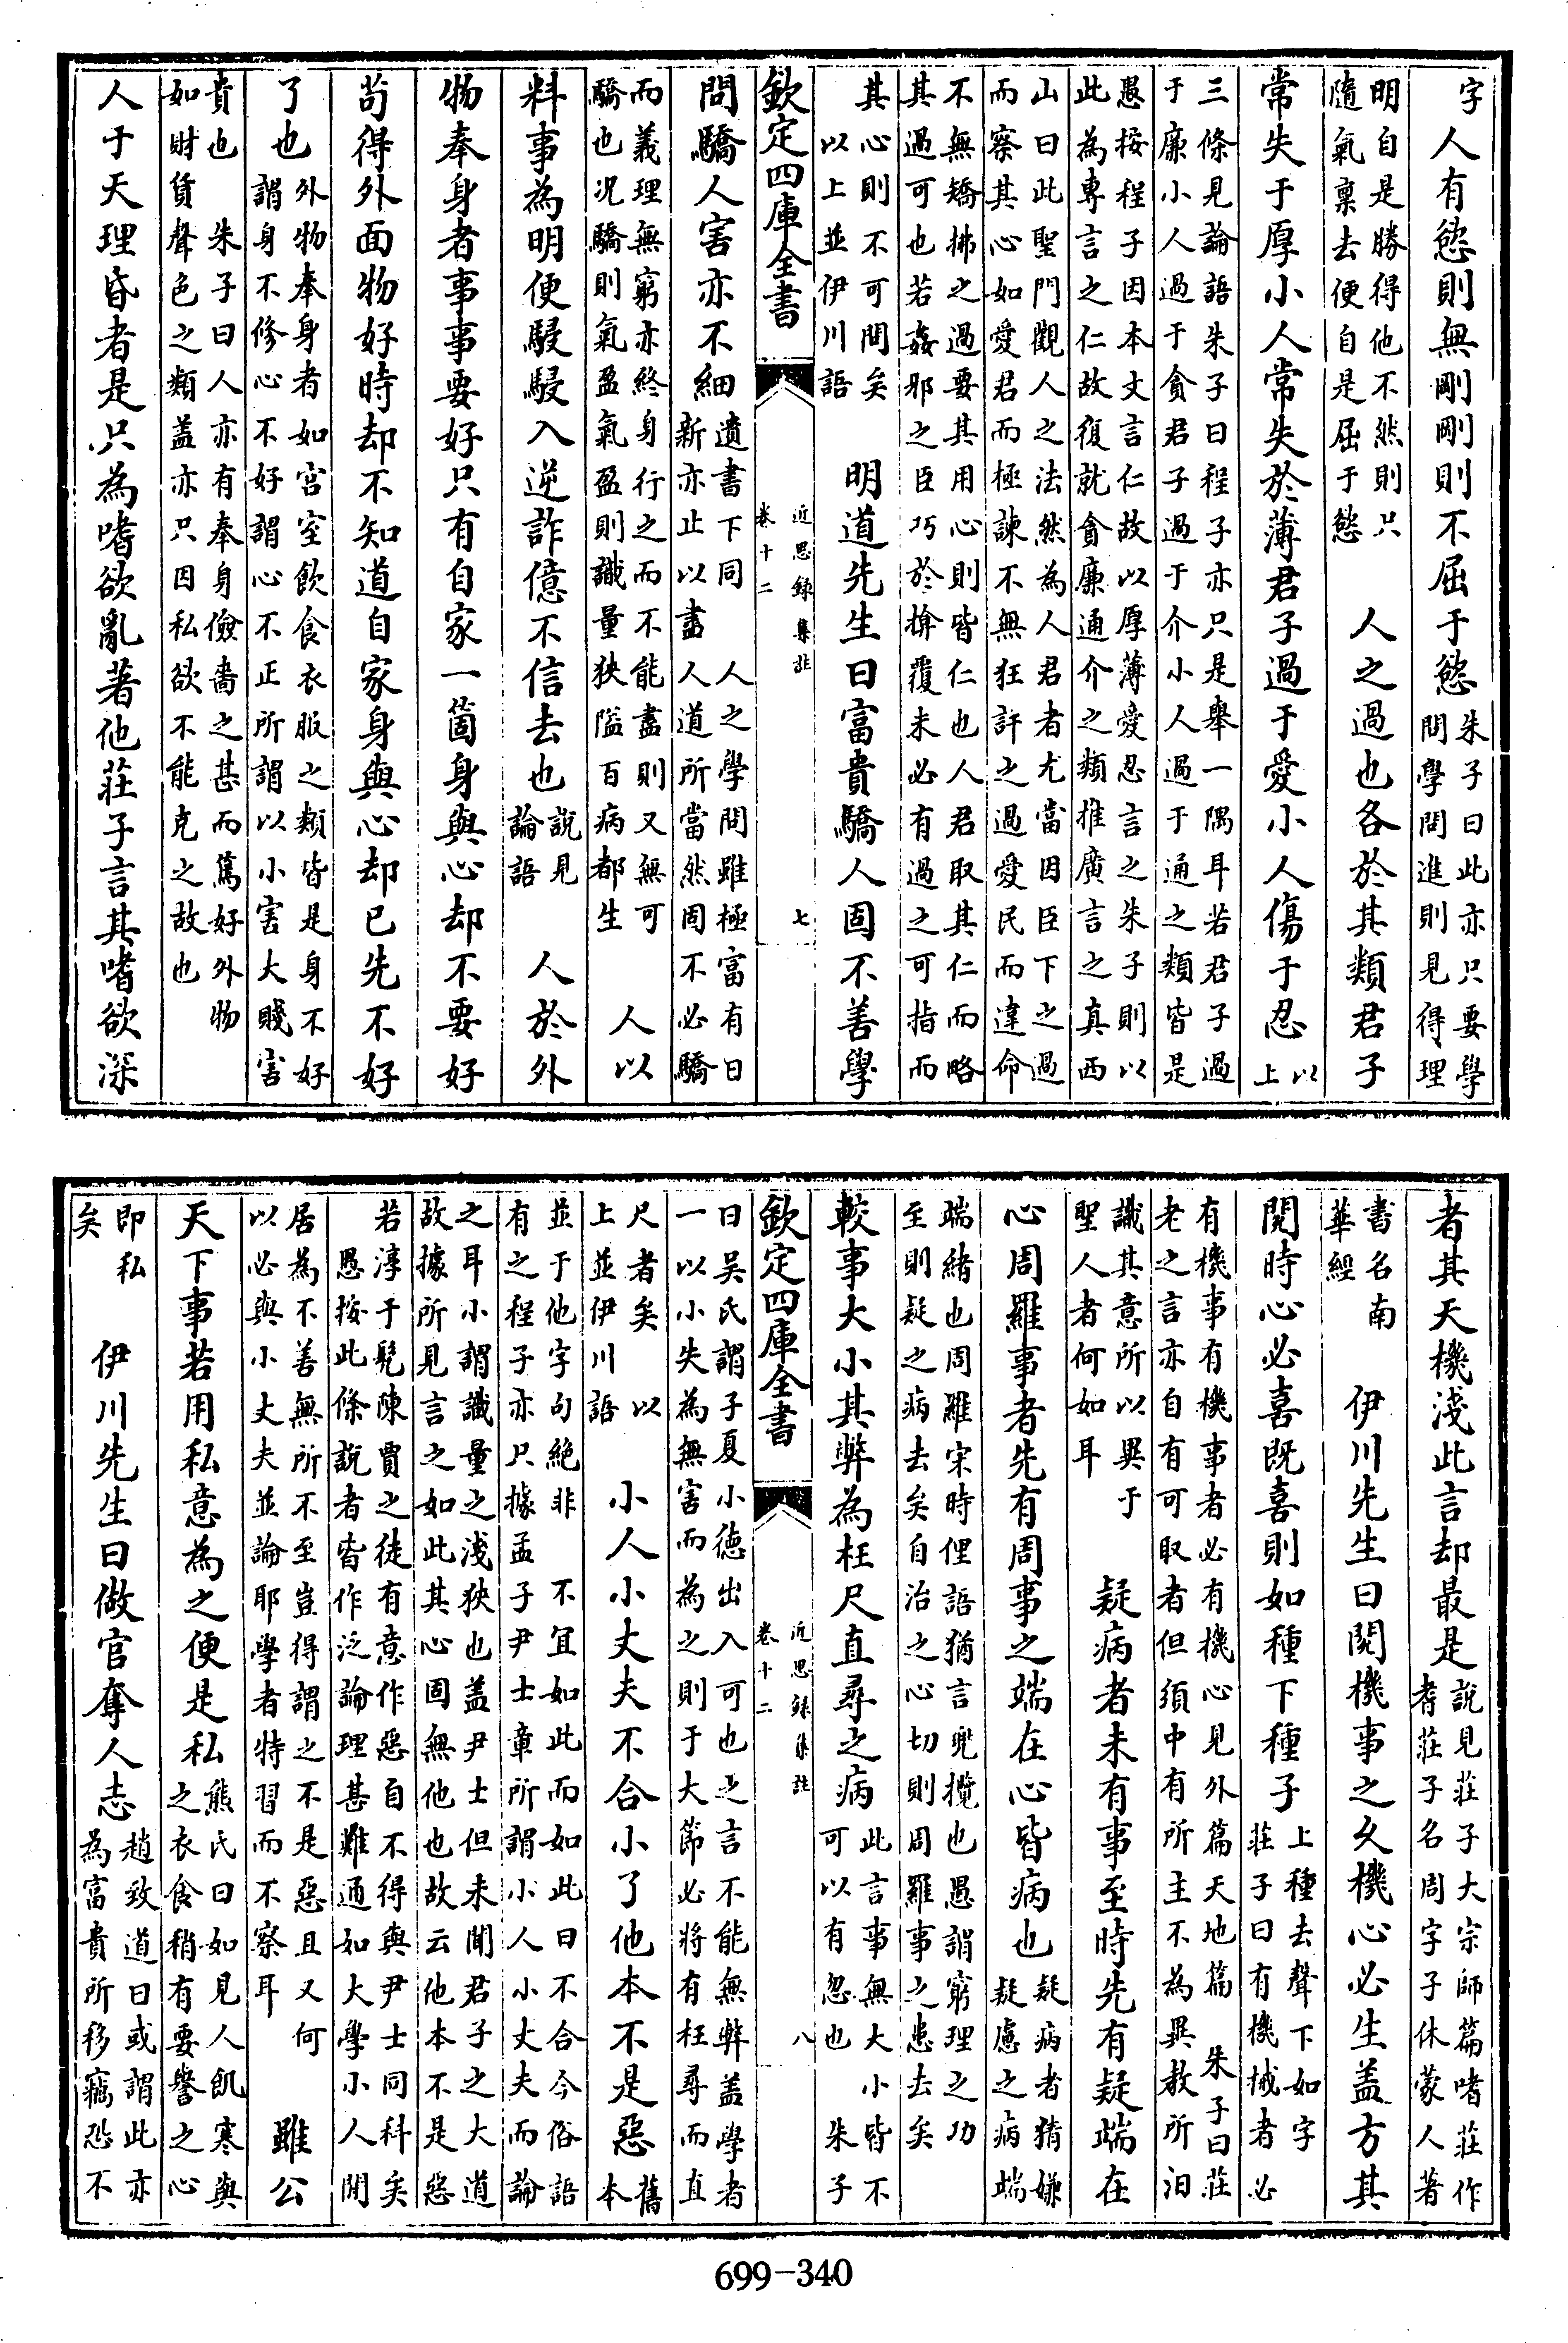 字人有慾則無剛剛則不屈于慾
朱子曰此亦只要學
問學問進則見得理
明自是勝得他不然則只
隨氣稟去便自是屈于慾
人之過也各於其類君子
常失于厚小人常失於薄君子過于愛小人傷于忍
以
上
三條見論語朱子曰程子亦只是舉一隅耳若君子過
于廉小人過于貪君子過于介小人過于通之類皆是
愚按程子因本文言仁故以厚薄愛忍言之朱子則以
此為專言之仁故復就貪廉通介之類推廣言之真西
山曰此聖門觀人之法然為人君者尤當因臣下之過
而察其心如愛君而極諫不無狂訐之過愛民而違命
不無矯拂之過要其用心則皆仁也人君取其仁而略
其過可也若姦邪之臣巧於揜覆未必有過之可指而
其心則不可問矣
以上並伊川語
明道先生曰富貴驕人固不善學
欽定四庫全書
近思録集註
卷十二
七
問驕人害亦不細
遺書下同　人之學問雖極富有日
新亦止以盡人道所當然固不必驕
而義理無窮亦終身行之而不能盡則又無可
驕也况驕則氣盈氣盈則識量狹隘百病都生
人以
料事為明便駸駸入逆詐億不信去也
說見
論語
人於外
物奉身者事事要好只有自家一箇身與心却不要好
苟得外面物好時却不知道自家身與心却已先不好
了也
外物奉身者如宮室飲食衣服之類皆是身不好
謂身不修心不好謂心不正所謂以小害大賤害
貴也　朱子曰人亦有奉身儉嗇之甚而篤好外物
如財貨聲色之類盖亦只因私欲不能克之故也
人于天理昏者是只為嗜欲亂著他莊子言其嗜欲深
者其天機淺此言却最是
說見莊子大宗師篇嗜莊作
耆莊子名周字子休蒙人著
書名南
華經
伊川先生曰閱機事之久機心必生盖方其
閱時心必喜既喜則如種下種子
上種去聲下如字
莊子曰有機械者必
有機事有機事者必有機心見外篇天地篇　朱子曰莊
老之言亦自有可取者但須中有所主不為異教所汨
識其意所以異于
聖人者何如耳
疑病者未有事至時先有疑端在
心周羅事者先有周事之端在心皆病也
疑病者猜嫌
疑慮之病端
端緒也周羅宋時俚語猶言兜攬也愚謂窮理之功
至則疑之病去矣自治之心切則周羅事之患去矣
較事大小其弊為枉尺直尋之病
此言事無大小皆不
可以有忽也　朱子
欽定四庫全書
近思録集註
卷十二
八
曰吳氏謂子夏小徳出入可也之言不能無弊盖學者
一以小失為無害而為之則于大節必將有枉尋而直
尺者矣　以
上並伊川語
小人小丈夫不合小了他本不是惡
舊
本
並于他字句絶非　不宜如此而如此曰不合今俗語
有之程子亦只據孟子尹士章所謂小人小丈夫而論
之耳小謂識量之淺狹也盖尹士但未聞君子之大道
故據所見言之如此其心固無他也故云他本不是惡
若淳于髡陳賈之徒有意作惡自不得與尹士同科矣
愚按此條說者皆作泛論理甚難通如大學小人閒
居為不善無所不至豈得謂之不是惡且又何
以必與小丈夫並論耶學者特習而不察耳
雖公
天下事若用私意為之便是私
熊氏曰如見人飢寒與
之衣食稍有要譽之心
即私
矣
伊川先生曰做官奪人志
趙致道曰或謂此亦
為富貴所移竊恐不
699-340